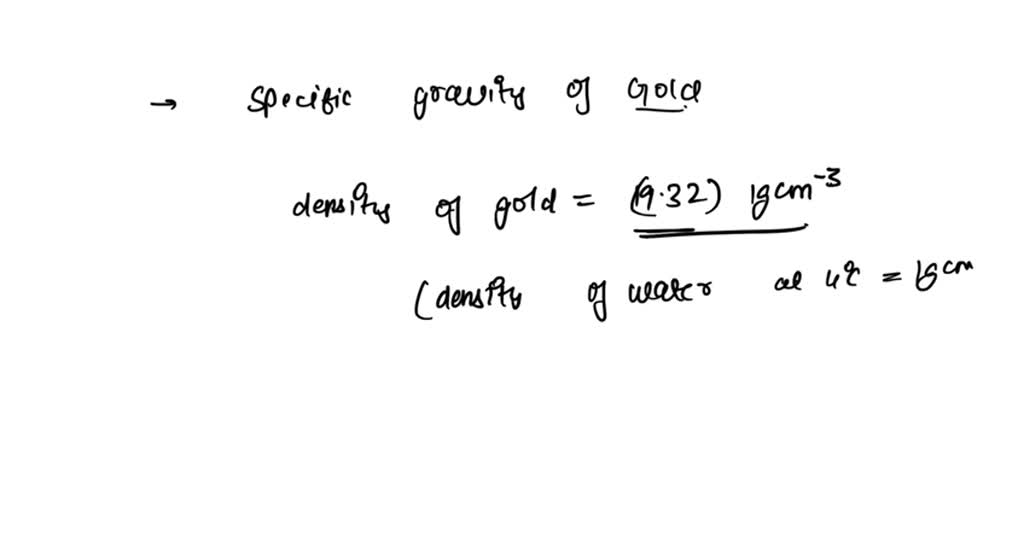 → specific gravity of Gold
density of gold = (19.32) 1gcm⁻³
(density of water at 4°c = 1gcm